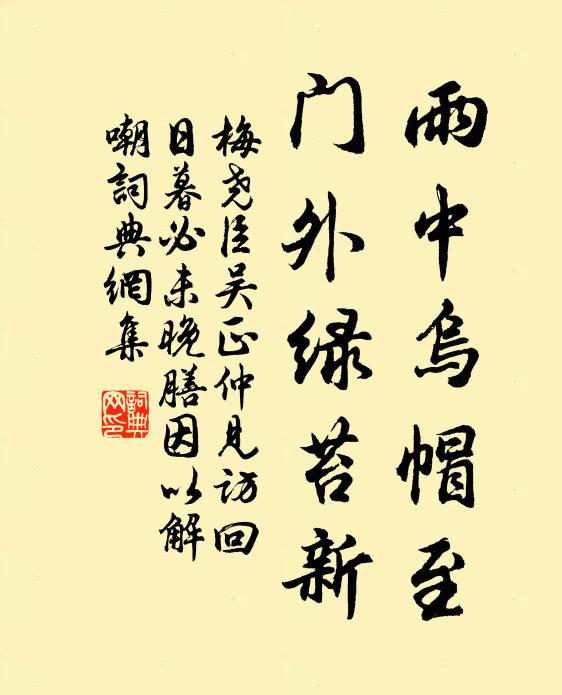 雨中烏帽至
门外绿苔新
梅尧臣吴正仲见访回
日暮必未晚膳因以解
嘲詞典網集
詞典
网印